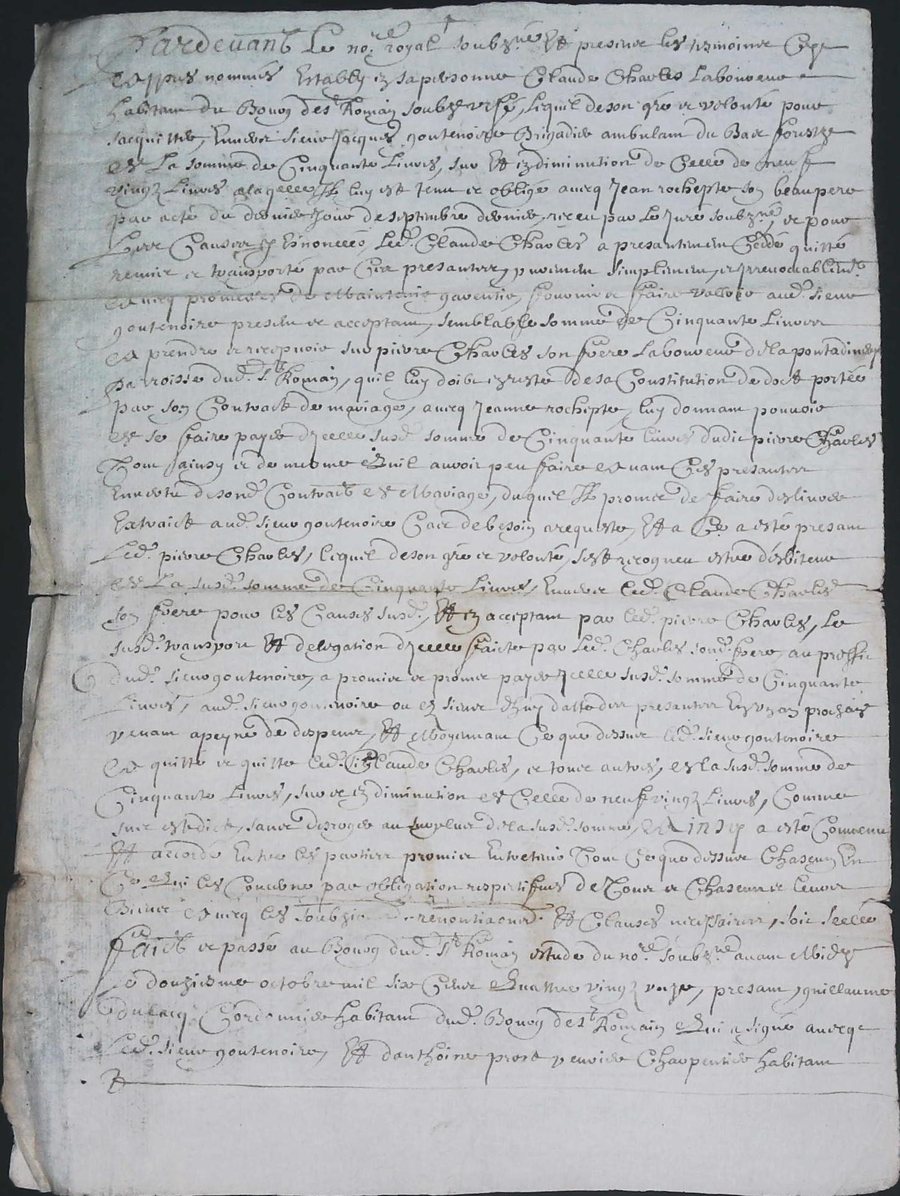 Pardevant Le no.re royal soubz.né Et presence les tesmoings Cy
et appres nommés Estably en sa personne Claude Charles Laboureur
habitant du Bourg de St Romain soubz urfé, Lequel de son gré et volonté pour
sacquitter, Envers sieur Jacques goutenoire Brigadier ambulant du Bail
de La somme de Cinquante Livres, sur Et en diminution de Celle de neuf
vingtz Livres a laquelle Il luy est tenu et obligé avecq Jean rochepte son beaupere
par acte du dernier Jour de septembre dernier, receu par Le Juré soubz.né, et pour
Les Causes y Enoncées, Led. Claude Charles a presantement Ceddé quitté
remis et transporté par Ces presantes, purement simplement, et Irrevocablem.t
avecq promesse de Maintenir garentir, fournir et faire valloir aud. sieur
goutenoire present et acceptant, semblable somme de Cinquante Livres
a prendre et recepvoir sur pierre Charles son frere Laboureur de la
parroisse dud. St Romain, quil luy doibt en reste de sa Constitution de dot portée
par son Contract de mariage, avecq Jeanne rochepte, luy donnant pouvoir
de se faire payer d'Icelle susd. somme de Cinquante livres dudit pierre Charles
Tout ainsy et de mesme quil auroit peu faire avant Ces presantes
En vertu de son d. Contract de Mariage, duquel Il promet de faire deslivrer
Extraict aud. sieur goutenoire Cas de besoin a requeste, Et a Ce a esté presant
Led. pierre Charles, lequel de son gré et volonté, sest recogneu estre debiteur
de La susd. somme de Cinquante Livres, Envers led. Claude Charles
son frere pour les Causes susd. Et en acceptant par led. pierre Charles, Le
susd. transport Et delegation d'Icelle faicte par Led. Charles son d. frere, au proffit
dud. sieur goutenoire, a promis et promet payer Icelle susd. somme de Cinquante
Livres, aud. sieur goutenoire ou es siens d'huy datte des presantes En un an prochain
venant a peyne de despens, Et Moyennant Ce que dessus led. sieur goutenoire
a quitté et quitte led. Claude Charles, et tous autres, de la susd. somme de
Cinquante Livres, sur et en diminution de Celle de neuf vingtz Livres, Comme
sus est dict, sans desroger au surplus de la susd. somme, Ainsy a esté Convenu
Et accordé Entre les parties promis Entretenir Tout Ce que dessus Chascun En
Ce qui les Concerne par obligation respectifve de Tous et Chascuns leurs
Biens avecq les renontiations Et Clauses necessaires, soit scellé
faict et passé au Bourg dud. St Romain estude du no.re soubz.né avant Midy
Le douziesme octobre mil six Cens quattre vingtz unze, presant guillaume
dulacq Cordonnier habitant dud. Bourg de St Romain qui a signé avecq
Led. sieur goutenoire, Et d'anthoine Charpentier habitant